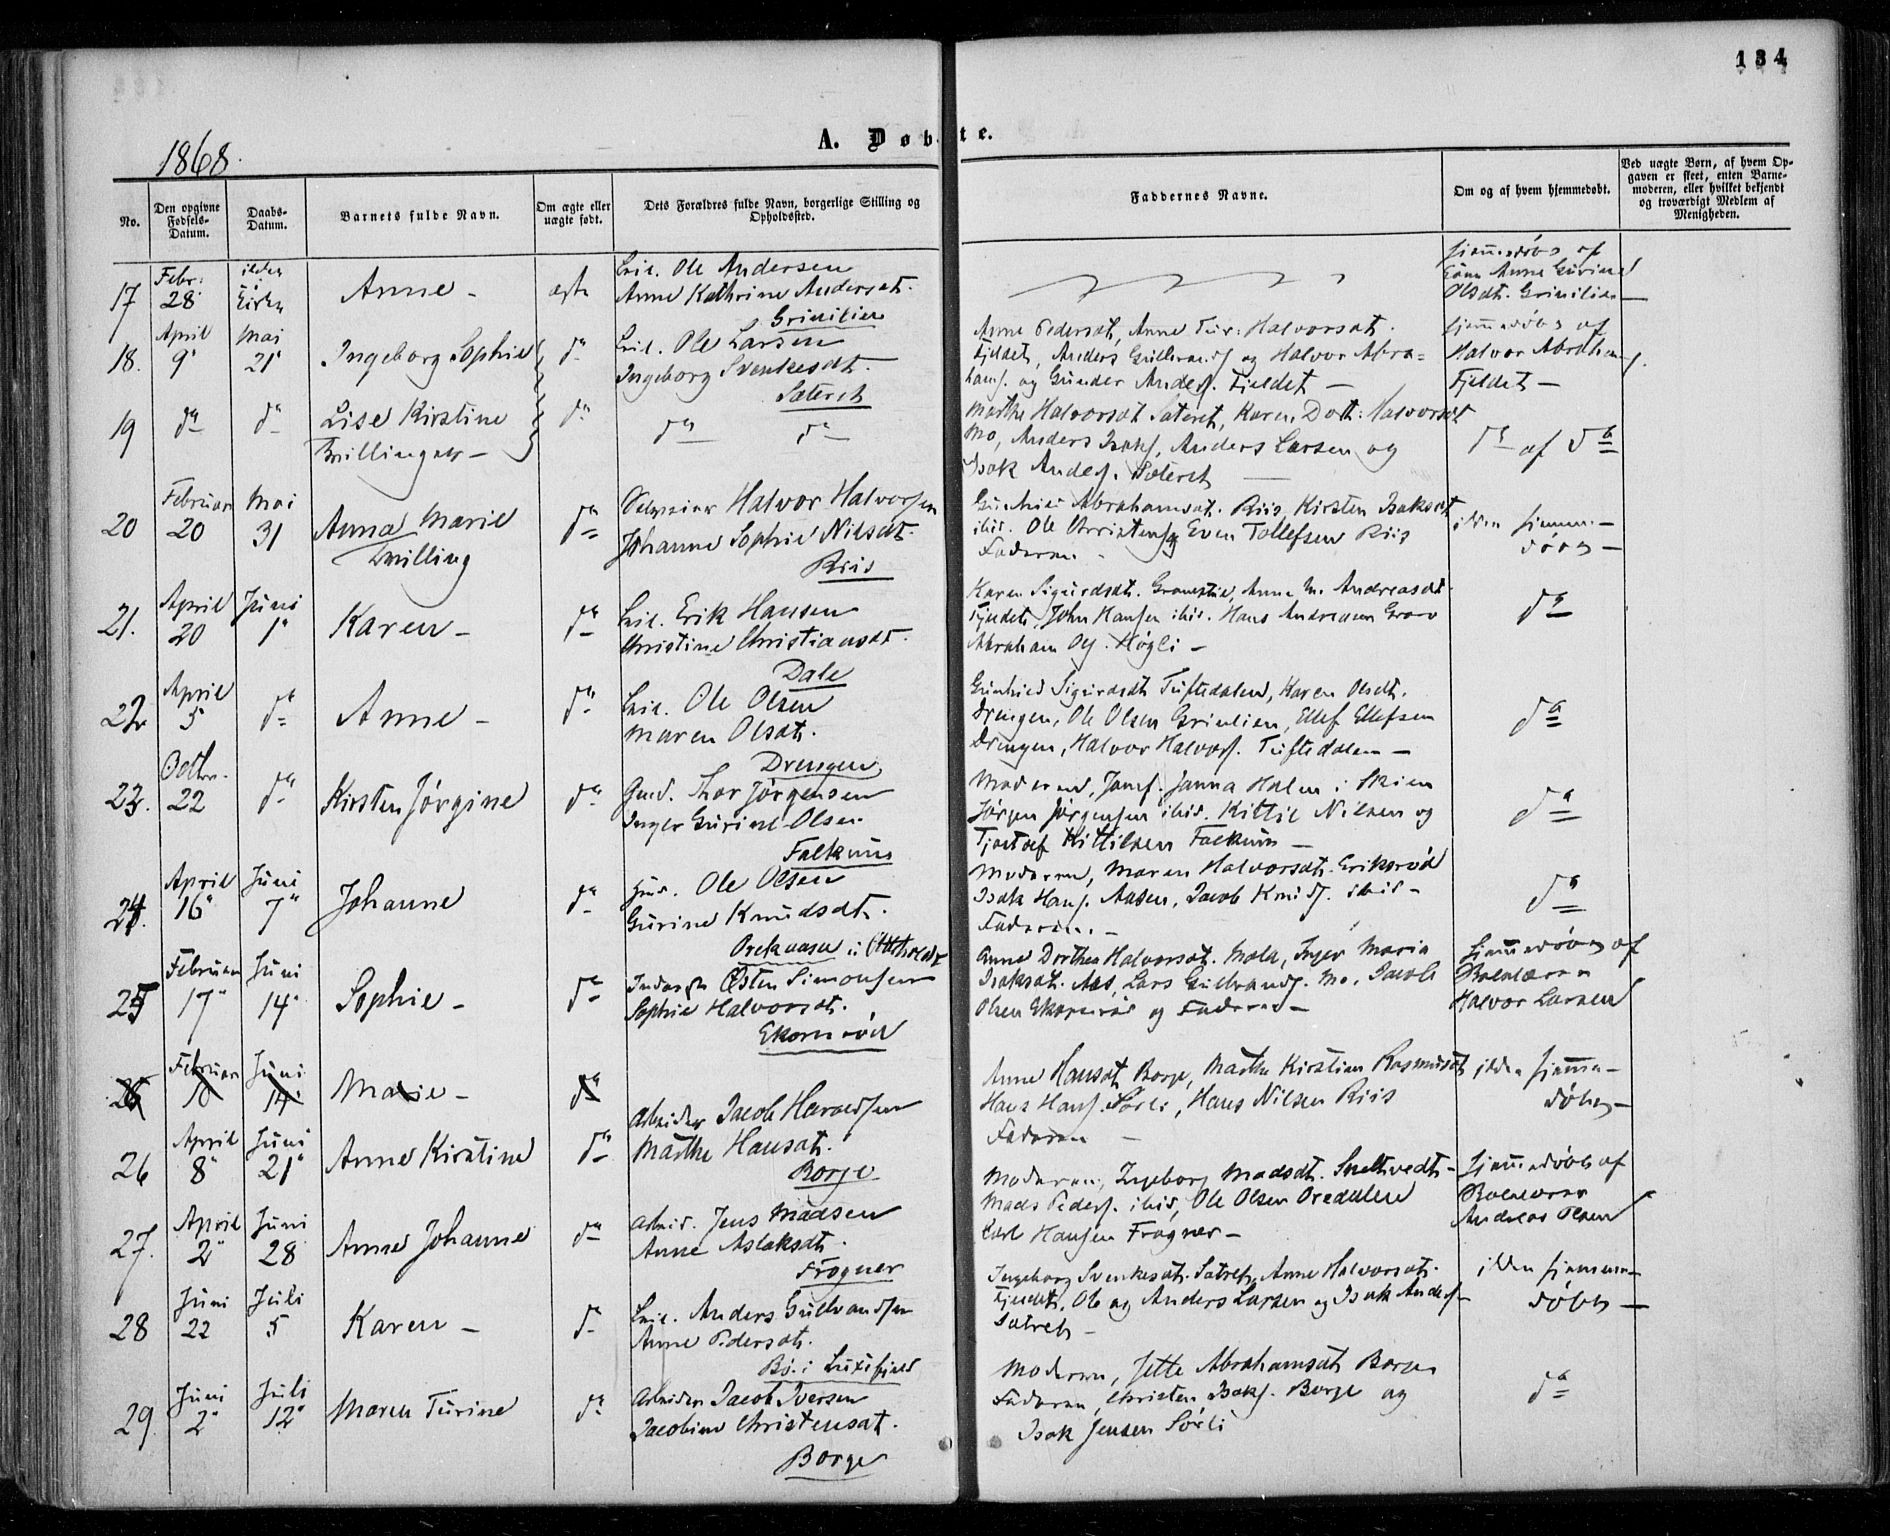 134
1868.
A. Døbte.
No.
Den opgivne Fødsels-Datum.
Daabs-Datum.
Barnets fulde Navn.
Om ægte eller uægte født.
Dets Forældres fulde Navn, borgerlige Stilling og Opholdssted.
Faddernes Navne.
Om og af hvem hjemmedøbt.
Ved uægte Børn, af hvem Opgaven er skeet, enten Barnemoderen, eller hvilket bekjendt og troværdigt Medlem af Menigheden.
17 Febr. 28 Anne - ægte
Ole Andersen
Anne Kathrine Andersdt.
Grinilien
hjemmedøbt af
Anne Gurine
Olsdt. Grinilien
18. April 9 Mai 21 Ingeborg Sophie do
Ole Larsen
Ingeborg Svenkesdt.
Sæteret
Anne Pedersdt, Anne Halvorsdt.
Fjeldet, Anders og Halvor Abra-
hams. og Gunder Anders. Fjeldet -
hjemmedøbt af
Halvor Abrahams.
Fjeldet -
19 do do Lise Kirstine do
Tvillinger -
do do
Marthe Halvorsdt Sæteret, Karen Dorth. Halvorsdt
Mo, Anders Isaks., Anders Larsen og
Isak Anders. Sæteret
do af do
20 Februar 20 Mai 31 Anna Marie do
Tvilling
Halvor Halvorsen
Johanne Sophie Nilsdt.
Riis
Abrahamsdt. Riis, Kirsten Isaksdt
ibid. Ole Christens. Even Tollefsen Riis
Faderen -
ikke hjemme-
døbt -
21. April 20 Juni 1 Karen - do
Erik Hansen
Christine Christiansdt.
Dale
Karen Sigurdsdt. Anne M. Andreasdt
Fjeldet, John Hansen ibid. Hans Andreasen
Abraham Ols. Høgli -
do
22 April 5 do Anne - do
Ole Olsen
Maren Olsdt.
Drengen
Gunhild Sigurdsdt Tuftedalen, Karen Olsdt.
Drengen, Ole Olsen Grinilien, Ellef Ellefsen
Drengen, Halvor Halvors. Tuftedalen -
do
23. Octbr. 22 do Kirsten Jørgine do
Thor Jørgensen
Inger Gurine Olsen
Falkum
Moderen, Jomf. Janna Holm i Skien
Jørgen Jørgensen ibid. Kittil Nilsen og
Kittilsen Falkum -
do
24. April 16 Juni 7 Johanne do
Ole Olsen
Gurine Knudsdt.
Moderen, Maren Halvorsdt. Eriksrød
Isak Hans. Aasen, Jacob Knuds. ibid -
Faderen -
do
25 Februar 17 Juni 14 Sophie - do
Østen Simonsen
Sophie Halvorsdt.
Ekornrød
Anne Dorthea Halvorsdt. Mela, Inger Maria
Isaksdt. Aas, Lars Gulbrands. Mo, Jacob
Olsen Ekornrød og Faderen -
hjemmedøbt af
Skolelærer
Halvor Larsen
26 Februar 10 Juni 14 Marie - do
26 April 8 Juni 21 Anne Kirstine do
Arbeider Jacob
Marthe Hansdt.
Borge
Anne Hansdt Borge, Marthe Kirstine Rasmusdt
Hans Hans. Sørli, Hans Nilsen Riis
Faderen -
ikke hjemme-
døbt -
27. April 2 Juni 28 Anne Johanne do
Arbeid. Jens Madsen
Anne Aslaksdt.
Frogner
Moderen, Ingeborg Madsdt. Smeltvedt -
Mads Peders. ibid, Ole Olsen
Carl Hansen Frogner -
hjemmedøbt af
Skolelærer
Andreas Olsen
28 Juni 22 Juli 5 Karen - do
Anders Gulbrandsen
Anne Pedersdt.
Bø i Luxefjeld
Ingeborg Svenkesdt. Sætret, Anne Halvorsdt.
Fjeldet, Ole og Anders Larsen og Isak Anders.
Sætret -
ikke hjemme-
døbt -
29 Juni 2 Juli 12 Maren Turine do
Arbeider Jacob Iversen
Jacobine Christensdt.
Borge
Moderen, Jette Abrahamsdt Borge
Faderen, Christen Isaks. Borge og
Isak Jensen Sørli
do